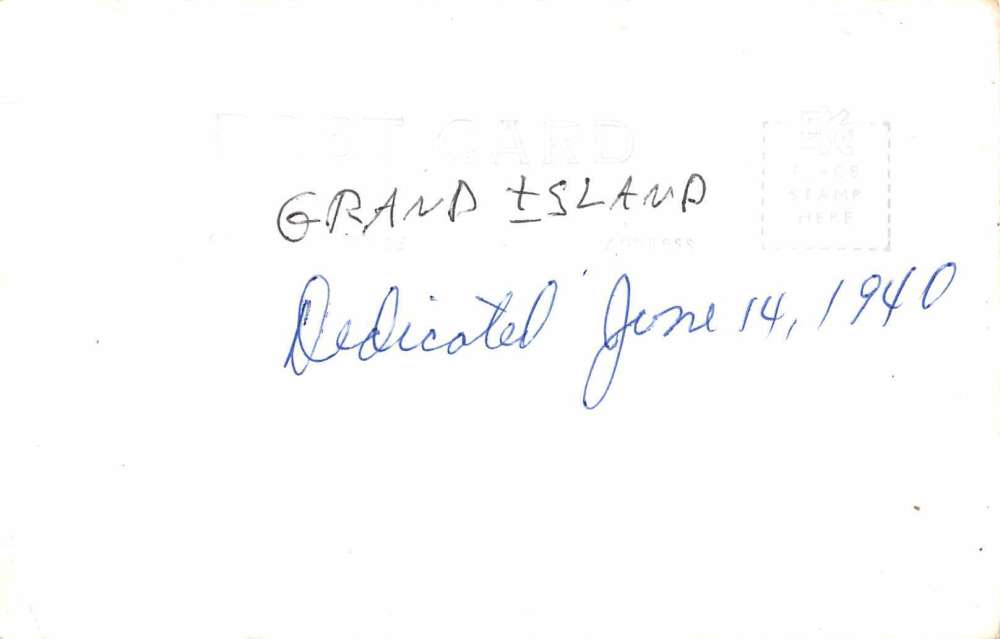 POST CARD
EKC
PLACE
STAMP
HERE
GRAND ISLAND
ADDRESS
Dedicated June 14, 1940